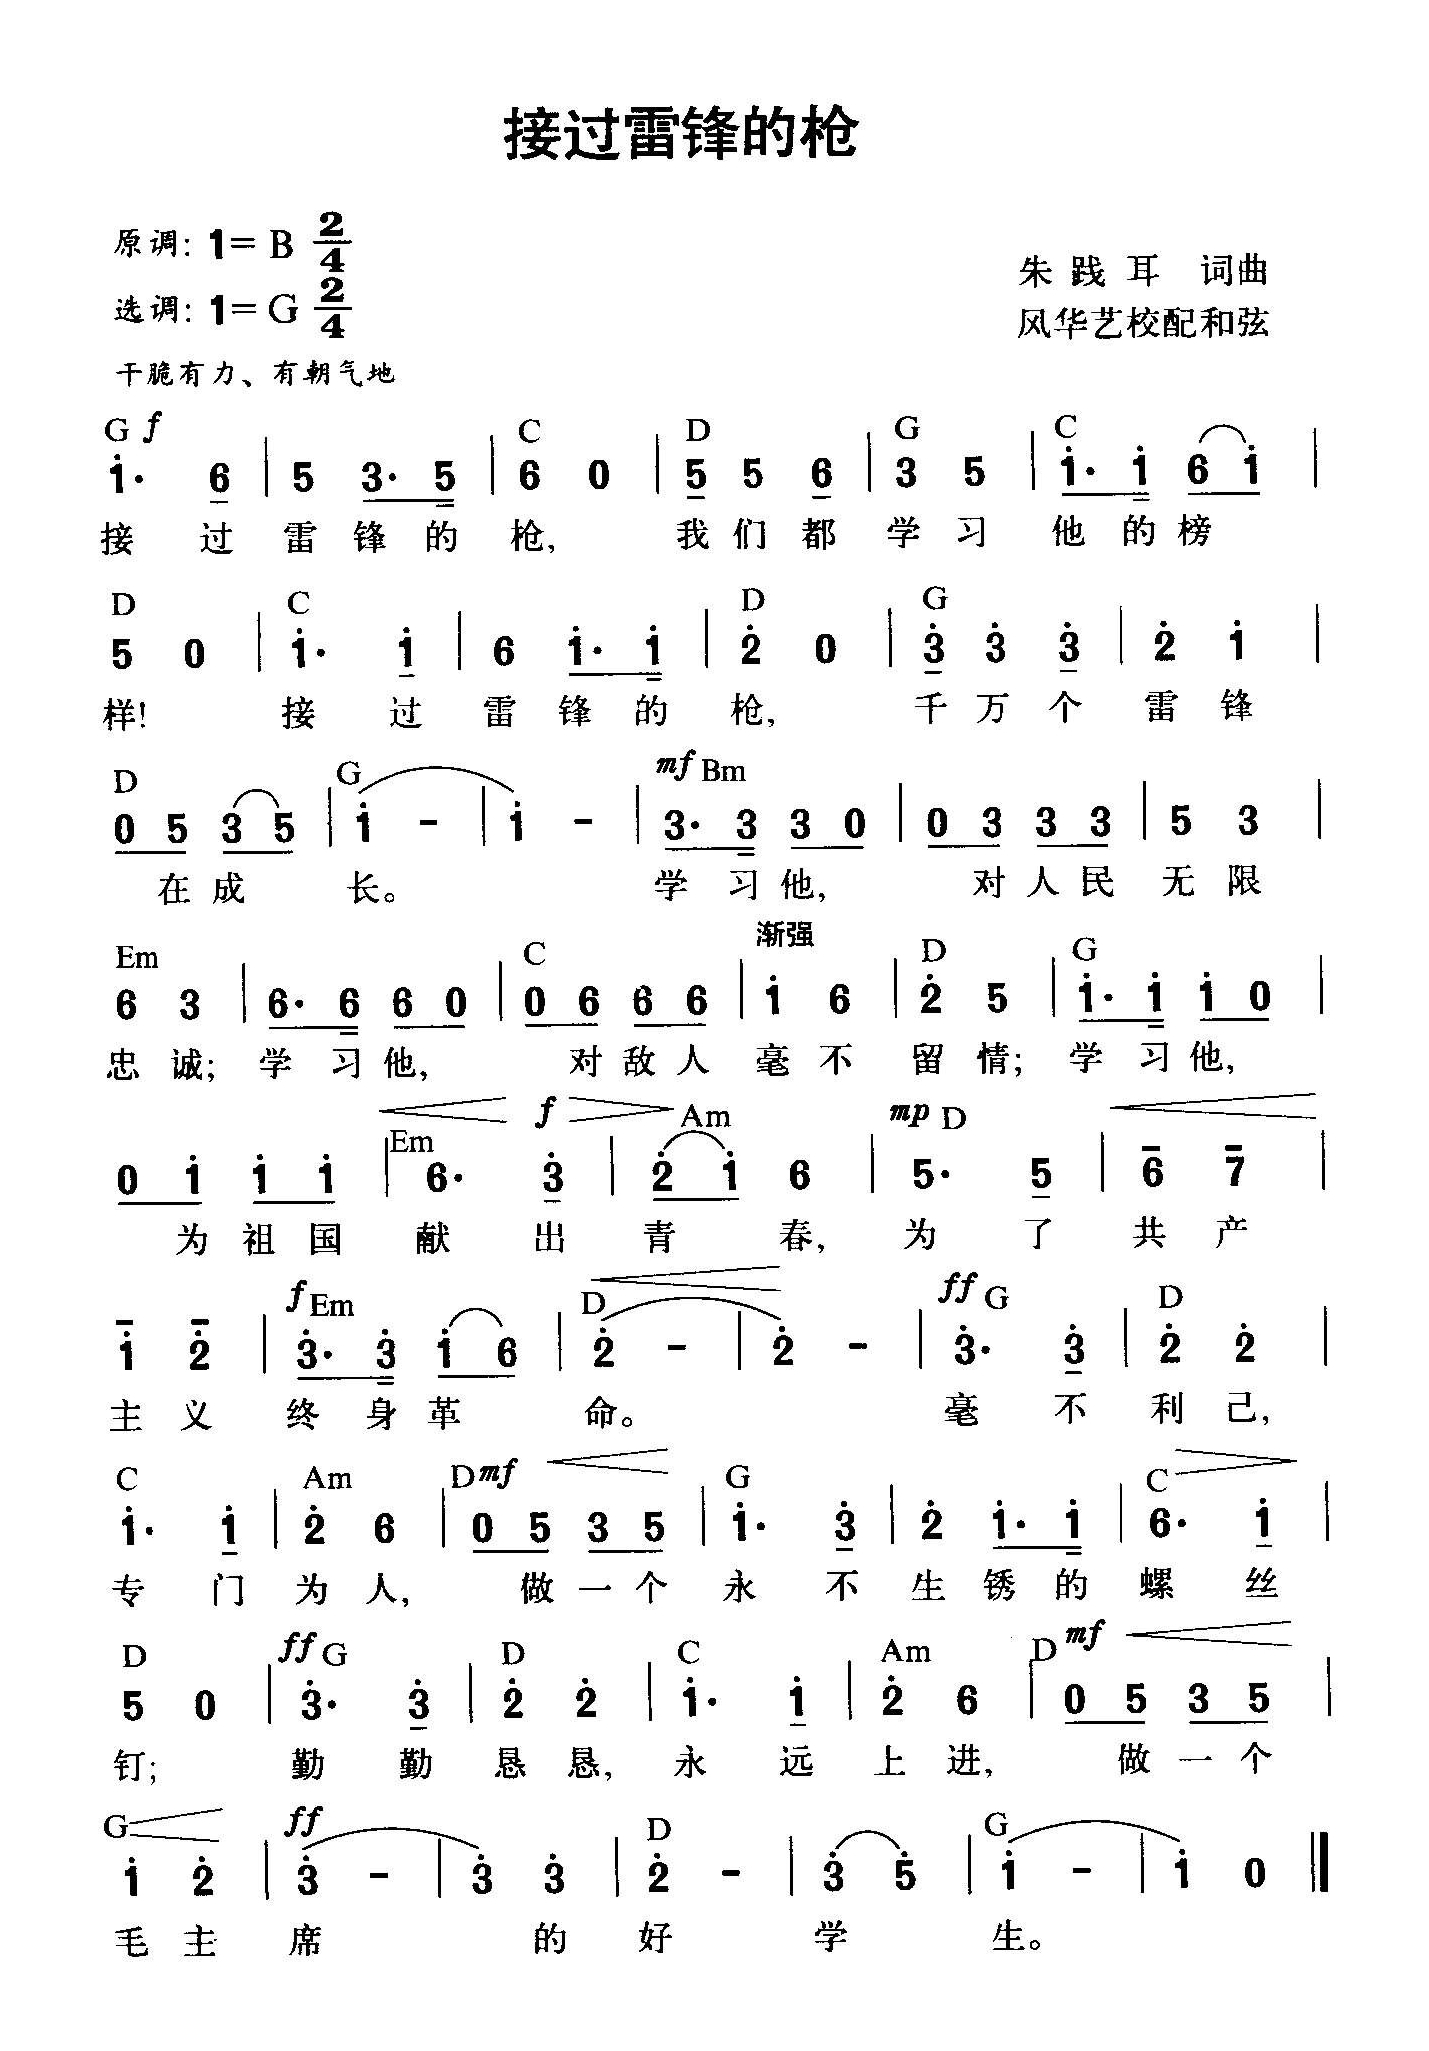 接过雷锋的枪
原调: 1= B 2/4
选调: 1= G 2/4
朱践耳 词曲
风华艺校配和弦
干脆有力、有朝气地
G f C D G C
1̇· 6 | 5 3· 5 | 6 0 | 5 5 6 | 3 5 | 1̇· 1̇ 6 1̇ |
接 过 雷 锋 的 枪, 我 们 都 学 习 他 的 榜
D C D G
5 0 | 1̇· 1̇ | 6 1̇· 1̇ | 2̇ 0 | 3̇ 3̇ 3̇ | 2̇ 1̇ |
样! 接 过 雷 锋 的 枪, 千 万 个 雷 锋
D G mf Bm
0 5 3 5 | 1̇ - | 1̇ - | 3· 3 3 0 | 0 3 3 3 | 5 3 |
在 成 长。 学 习 他, 对 人 民 无 限
Em C 渐强 D G
6 3 | 6· 6 6 0 | 0 6 6 6 | 1̇ 6 | 2̇ 5 | 1̇· 1̇ 1̇ 0 |
忠 诚; 学 习 他, 对 敌 人 毫 不 留 情; 学 习 他,
Em f Am mp D
0 1̇ 1̇ 1̇ | 6· 3̇ | 2̇ 1̇ 6 | 5· 5 | 6 7 |
为 祖 国 献 出 青 春, 为 了 共 产
f Em D ff G D
1̇ 2̇ | 3̇· 3̇ 1̇ 6 | 2̇ - | 2̇ - | 3̇· 3̇ | 2̇ 2̇ |
主 义 终 身 革 命。 毫 不 利 己,
C Am D mf G C
1̇· 1̇ | 2̇ 6 | 0 5 3 5 | 1̇· 3̇ | 2̇ 1̇· 1̇ | 6· 1̇ |
专 门 为 人, 做 一 个 永 不 生 锈 的 螺 丝
D ff G D C Am D mf
5 0 | 3̇· 3̇ | 2̇ 2̇ | 1̇· 1̇ | 2̇ 6 | 0 5 3 5 |
钉; 勤 勤 恳 恳, 永 远 上 进, 做 一 个
G ff D G
1̇ 2̇ | 3̇ - | 3̇ 3̇ | 2̇ - | 3̇ 5̇ | 1̇ - | 1̇ 0 ‖
毛 主 席 的 好 学 生。